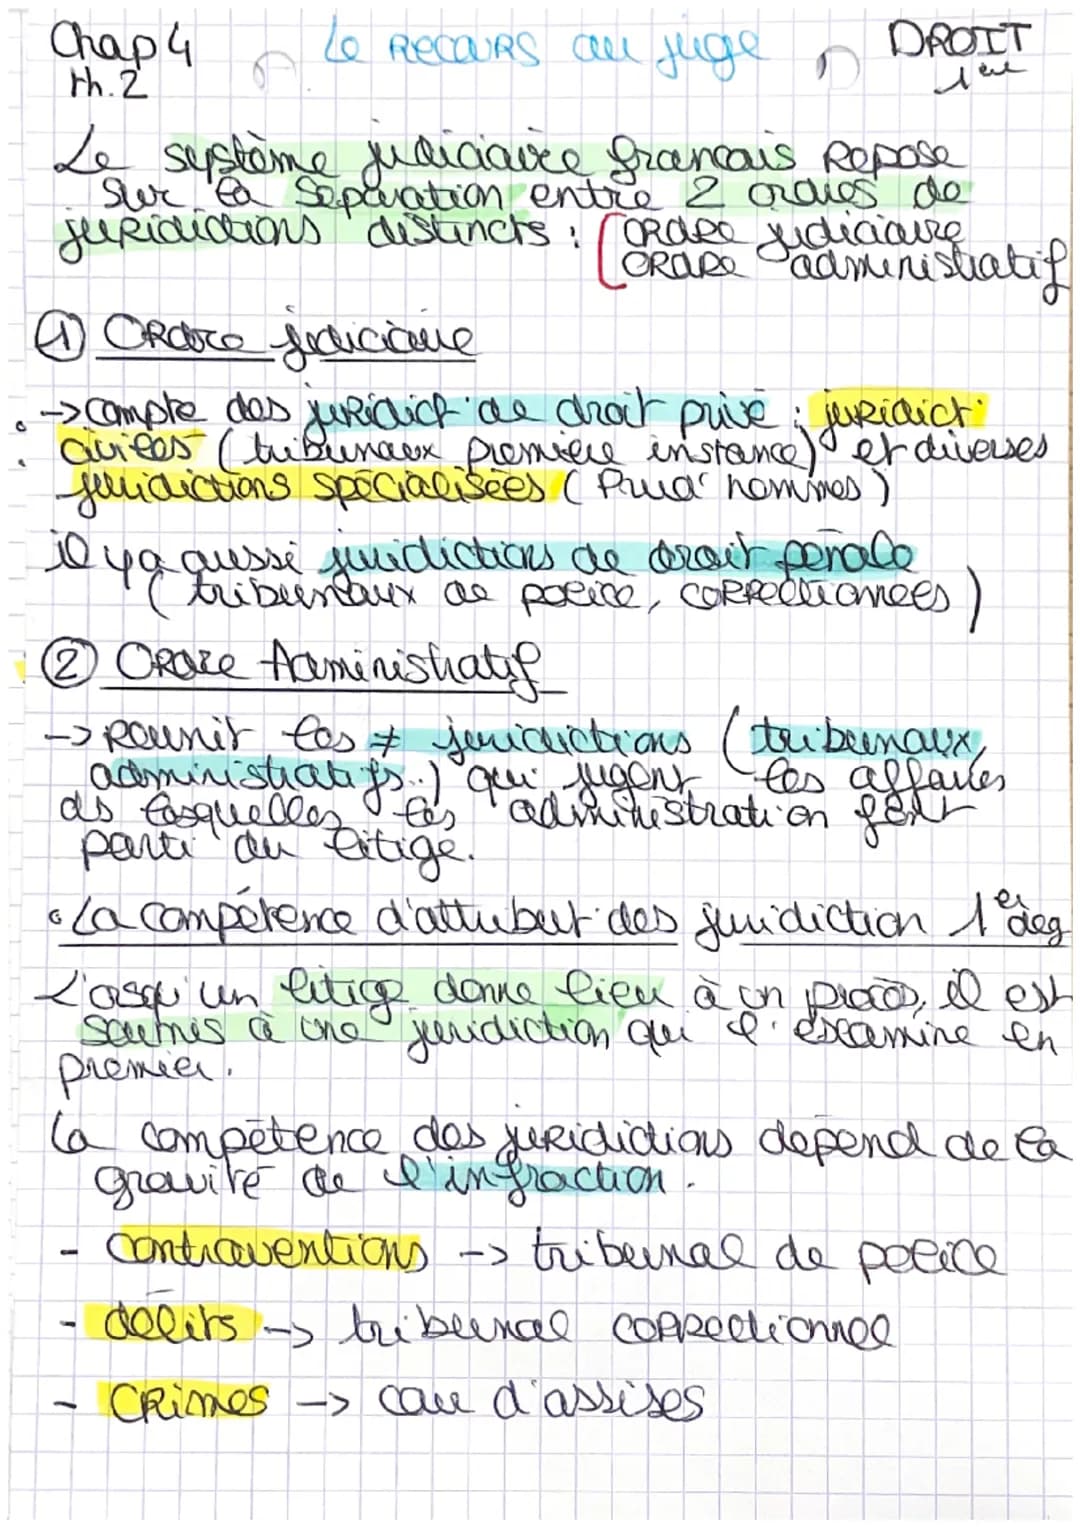 Chap 4 Le RECOURS au juge DROIT
th.2 1ère
Le système judiciaire francais Repose
sur la séparation entre 2 ordres de
juridictions distincts : [ORDRE judiciaire
ORDRE administratif
① ORDRE judiciaire
-> compte des juridict° de droit privé : juridict°
civiles (tribunaux première instance) et diverses
juridictions spécialisées ( Prud'hommes )
il y a aussi juridictions de droit pénale
( tribunaux de police, correctionnels )
② ORDRE Administratif
-> Réunit les ≠ juridictions ( tribunaux
administratifs...) qui jugent les affaires
ds lesquelles les administration font
parti du litige.
• La compétence d'attribut° des juridiction 1er deg
L'orsqu'un litige donne lieu à un procès, il est
soumis à une juridiction qui l'examine en
premier.
La compétence des juridictions dépend de la
gravité de l'infraction.
- contraventions -> tribunal de police
- délits -> tribunal correctionnel
- CRimes -> cour d'assises